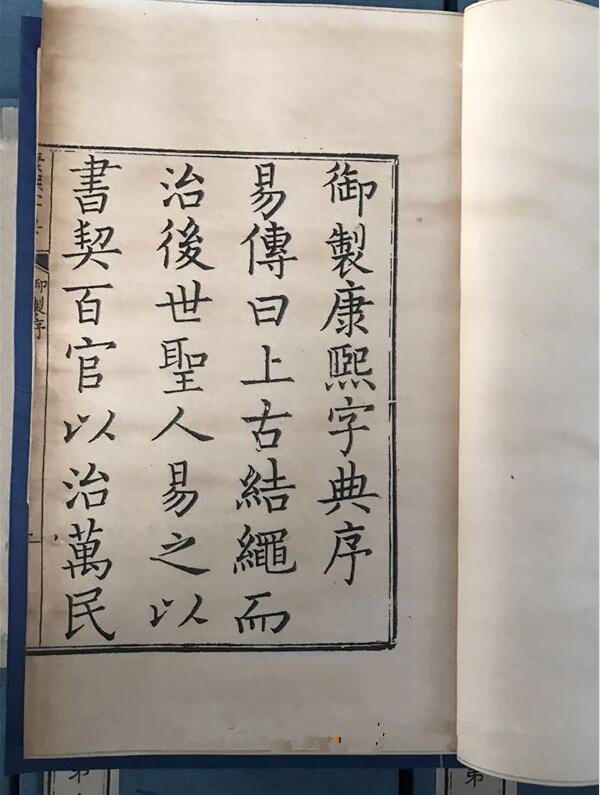 御製康熙字典序
易傳曰上古結繩而
治後世聖人易之以
書契百官以治萬民
御製序
第
第